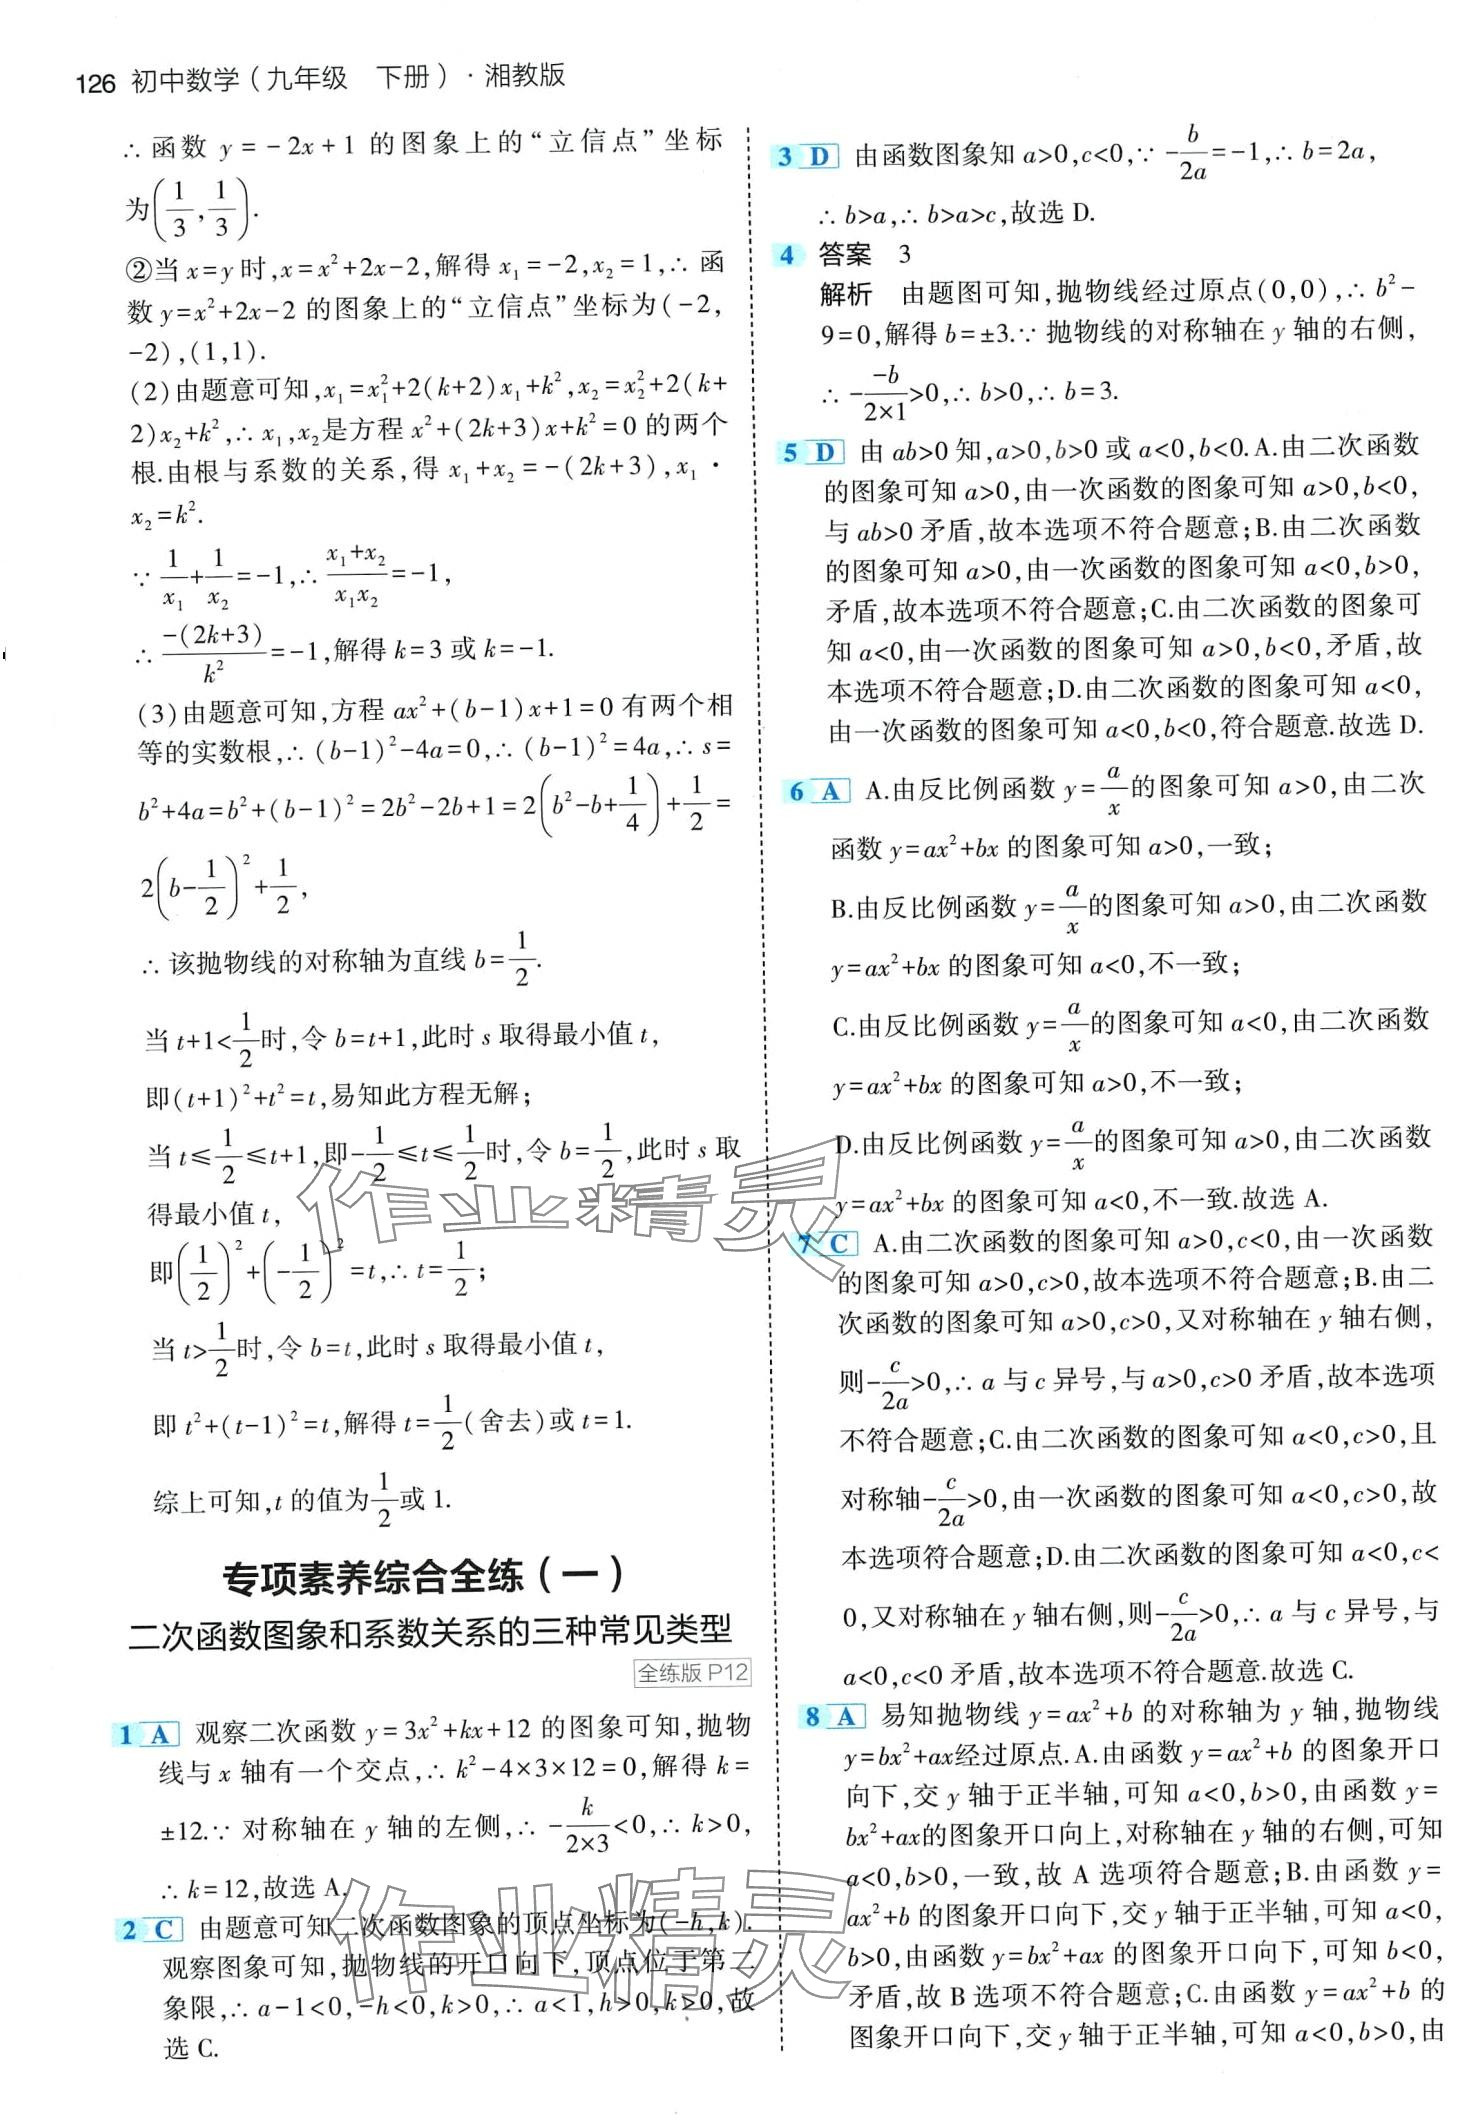 126 初中数学(九年级 下册)·湘教版
∴函数 y=-2x+1 的图象上的“立信点”坐标
为(1/3,1/3).
②当 x=y 时,x=x²+2x-2,解得 x₁=-2,x₂=1,∴函
数 y=x²+2x-2 的图象上的“立信点”坐标为(-2,
-2),(1,1).
(2)由题意可知,x₁=x₁²+2(k+2)x₁+k²,x₂=x₂²+2(k+
2)x₂+k²,∴x₁,x₂是方程 x²+(2k+3)x+k²=0 的两个
根.由根与系数的关系,得 x₁+x₂=-(2k+3),x₁·
x₂=k².
∵1/x₁+1/x₂=-1,∴(x₁+x₂)/(x₁x₂)=-1,
∴-(2k+3)/k²=-1,解得 k=3 或 k=-1.
(3)由题意可知,方程 ax²+(b-1)x+1=0 有两个相
等的实数根,∴(b-1)²-4a=0,∴(b-1)²=4a,∴s=
b²+4a=b²+(b-1)²=2b²-2b+1=2(b²-b+1/4)+1/2=
2(b-1/2)²+1/2,
∴该抛物线的对称轴为直线 b=1/2.
当 t+1<1/2时,令 b=t+1,此时 s 取得最小值 t,
即(t+1)²+t²=t,易知此方程无解;
当 t≤1/2≤t+1,即-1/2≤t≤1/2时,令 b=1/2,此时 s 取
得最小值 t,
即(1/2)²+(-1/2)²=t,∴t=1/2;
当 t>1/2时,令 b=t,此时 s 取得最小值 t,
即 t²+(t-1)²=t,解得 t=1/2(舍去)或 t=1.
综上可知,t 的值为1/2或 1.
专项素养综合全练(一)
二次函数图象和系数关系的三种常见类型
全练版 P12
1 A 观察二次函数 y=3x²+kx+12 的图象可知,抛物
线与 x 轴有一个交点,∴k²-4×3×12=0,解得 k=
±12.∵对称轴在 y 轴的左侧,∴-k/(2×3)<0,∴k>0,
∴k=12,故选 A.
2 C 由题意可知二次函数图象的顶点坐标为(-h,k).
观察图象可知,抛物线的开口向下,顶点位于第二
象限,∴a-1<0,-h<0,k>0,∴a<1,h>0,k>0,故
选 C.
3 D 由函数图象知 a>0,c<0,∵-b/2a=-1,∴b=2a,
∴b>a,∴b>a>c,故选 D.
4 答案 3
解析 由题图可知,抛物线经过原点(0,0),∴b²-
9=0,解得 b=±3.∵抛物线的对称轴在 y 轴的右侧,
∴-(-b)/(2×1)>0,∴b>0,∴b=3.
5 D 由 ab>0 知,a>0,b>0 或 a<0,b<0.A.由二次函数
的图象可知 a>0,由一次函数的图象可知 a>0,b<0,
与 ab>0 矛盾,故本选项不符合题意;B.由二次函数
的图象可知 a>0,由一次函数的图象可知 a<0,b>0,
矛盾,故本选项不符合题意;C.由二次函数的图象可
知 a<0,由一次函数的图象可知 a>0,b<0,矛盾,故
本选项不符合题意;D.由二次函数的图象可知 a<0,
由一次函数的图象可知 a<0,b<0,符合题意.故选 D.
6 A A.由反比例函数 y=a/x的图象可知 a>0,由二次
函数 y=ax²+bx 的图象可知 a>0,一致;
B.由反比例函数 y=a/x的图象可知 a>0,由二次函数
y=ax²+bx 的图象可知 a<0,不一致;
C.由反比例函数 y=a/x的图象可知 a<0,由二次函数
y=ax²+bx 的图象可知 a>0,不一致;
D.由反比例函数 y=a/x的图象可知 a>0,由二次函数
y=ax²+bx 的图象可知 a<0,不一致.故选 A.
7 C A.由二次函数的图象可知 a>0,c<0,由一次函数
的图象可知 a>0,c>0,故本选项不符合题意;B.由二
次函数的图象可知 a>0,c>0,又对称轴在 y 轴右侧,
则-c/2a>0,∴a 与 c 异号,与 a>0,c>0 矛盾,故本选项
不符合题意;C.由二次函数的图象可知 a<0,c>0,且
对称轴-c/2a>0,由一次函数的图象可知 a<0,c>0,故
本选项符合题意;D.由二次函数的图象可知 a<0,c<
0,又对称轴在 y 轴右侧,则-c/2a>0,∴a 与 c 异号,与
a<0,c<0 矛盾,故本选项不符合题意.故选 C.
8 A 易知抛物线 y=ax²+b 的对称轴为 y 轴,抛物线
y=bx²+ax经过原点.A.由函数 y=ax²+b 的图象开口
向下,交 y 轴于正半轴,可知 a<0,b>0,由函数 y=
bx²+ax的图象开口向上,对称轴在 y 轴的右侧,可知
a<0,b>0,一致,故 A 选项符合题意;B.由函数 y=
ax²+b 的图象开口向下,交 y 轴于正半轴,可知 a<0,
b>0,由函数 y=bx²+ax 的图象开口向下,可知 b<0,
矛盾,故 B 选项不符合题意;C.由函数 y=ax²+b 的
图象开口向下,交 y 轴于正半轴,可知 a<0,b>0,由
作业精灵
作业精灵